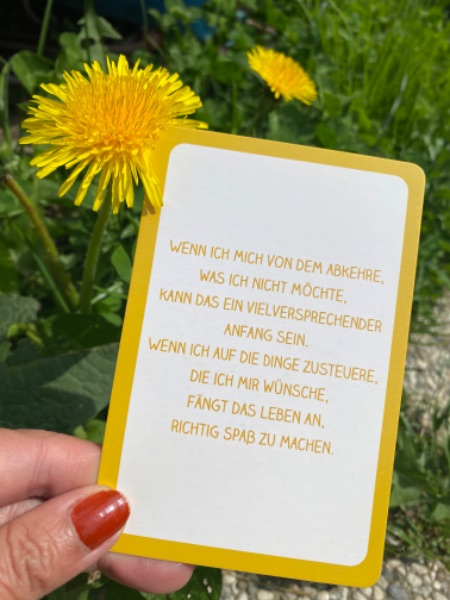 WENN ICH MICH VON DEM ABKEHRE,
WAS ICH NICHT MÖCHTE,
KANN DAS EIN VIELVERSPRECHENDER
ANFANG SEIN.
WENN ICH AUF DIE DINGE ZUSTEUERE,
DIE ICH MIR WÜNSCHE,
FÄNGT DAS LEBEN AN,
RICHTIG SPAß ZU MACHEN.